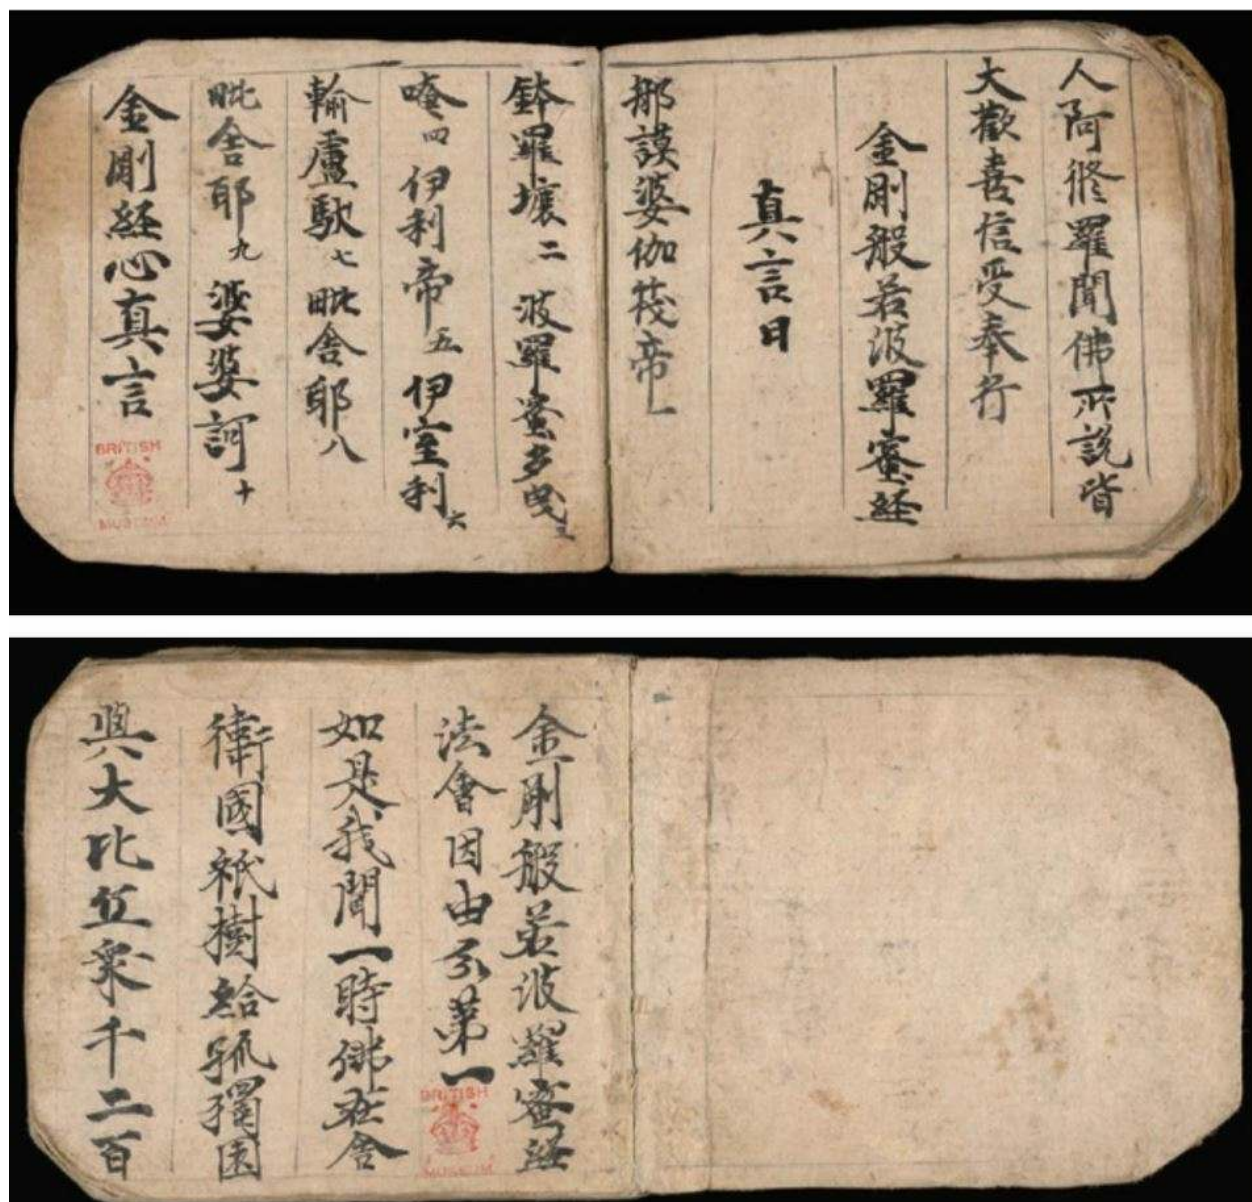 人阿修羅聞佛所説皆
大歡喜信受奉行
金剛般若波羅蜜経
真言曰
那謨婆伽筏帝一
鉢羅壤二 波羅蜜多曳三
唵四 伊利帝五 伊室利六
輸盧馱七 毗舍耶八
毗舍耶九 婆婆訶十
金剛経心真言
BRITISH
MUSEUM
金剛般若波羅蜜経
法會因由分第一
如是我聞一時佛在舍
衛國祇樹給孤獨園
與大比丘衆千二百
BRITISH
MUSEUM